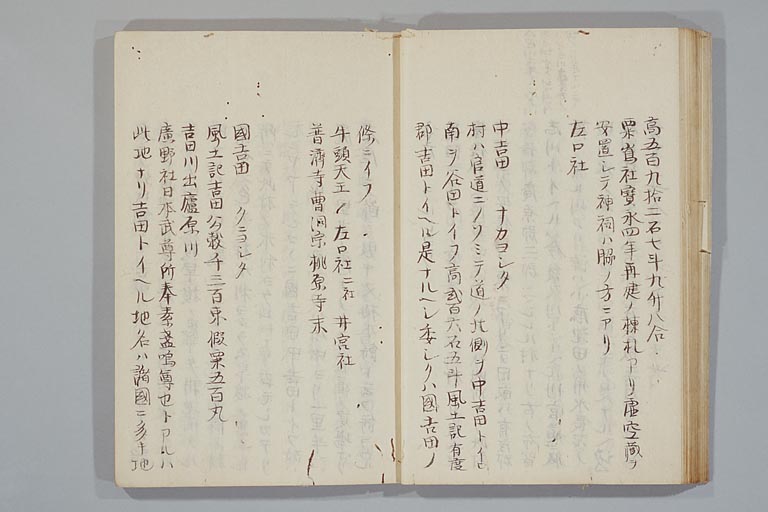 高五百九拾二石七斗九升八合
粟嶌社寶永四年再建ノ棟札アリ虚空蔵ヲ
安置シテ神祠ハ脇ノ方ニアリ
左口社
中吉田 ナカヨシタ
村ハ官道ニノソミテ道ノ北側ヲ中吉田トイヒ
南ヲ谷田トイフ高弐百六石五斗風土記有度
郡吉田トイヘル是ナルヘシ委シクハ國吉田ノ
條ニイフ
牛頭天王ノ左口社二社 井宮社
普濟寺曹洞宗桃原寺末
國吉田 クニヨシタ
風土記吉田公穀千三百束假粟五百丸
吉田川出廬原川
廣野社日本武尊所奉素盞嗚尊也トアルハ
此地ナリ吉田トイヘル地名ハ諸國ニ多キ地